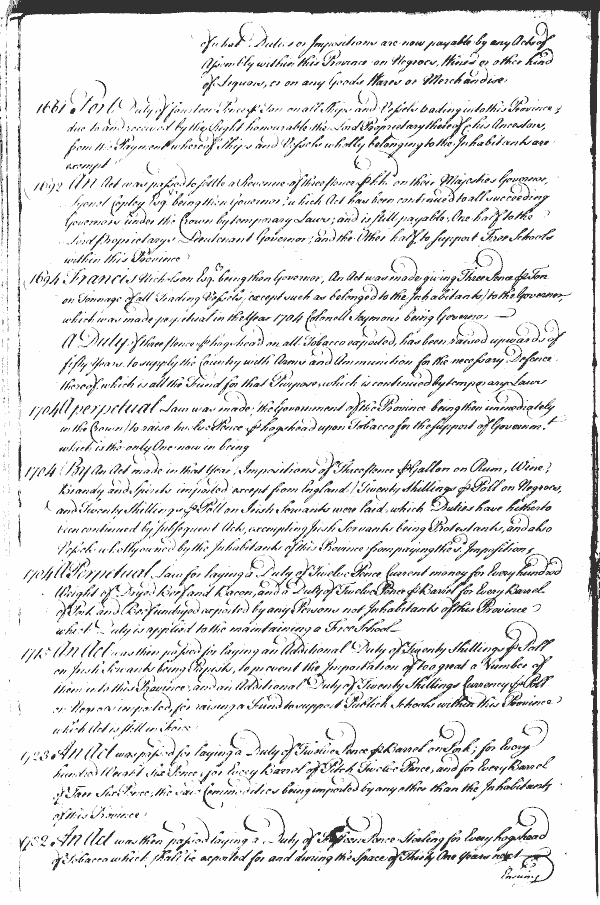 of what Duties or Impositions are now payable by any Acts of
Assembly within this Province on Negroes, Wines or other kind
of Liquors, or on any Goods Wares or Merchandise
1661 Port Duty of fourteen Pence p Ton on all Ships and Vessels trading into this Province,
due to and received by the Right honourable the Lord Proprietary thereof & his Ancestors,
from the Payment whereof Ships and Vessels wholly belonging to the Inhabitants are
exempt
1692 An Act was passed to settle a Revenue of three Pence p hhd on their Majesties Governor
Lyonel Copley Esqr being then Governor, which Act has been continued to all succeeding
Governors under the Crown by temporary Laws; and is still payable, One half to the
Lord Proprietarys Lieutenant Governor, and the Other half to support Free Schools
within this Province
1694 Francis Nicholson Esqr being then Governor, An Act was made giving Three Pence p Ton
on Tonnage of all Trading Vessels, (except such as belonged to the Inhabitants) to the Governor
which was made perpetual in the Year 1704 Colonell Seymour being Governor
A Duty of three Pence p hogshead on all Tobacco exported, has been raised upwards of
fifty Years, to supply the Country with Arms and Ammunition for the necessary Defence
thereof which is all the Fund for that Purpose, which is continued by temporary Laws
1704 A perpetual Law was made, the Government of the Province being then immediately
in the Crown to raise twelve Pence p hogshead upon Tobacco for the support of Governmt
which is the only One now in being
1704 By An Act made in this Year, Impositions of Three Pence p Gallon on Rum, Wine,
Brandy and Spirits imported except from England, Twenty Shillings p Poll on Negroes,
and Twenty Shillings p Poll on Irish Servants were laid, which Duties have hitherto
been continued by subsequent Acts, exempting Irish Servants being Protestants, and also
Vessels wholly owned by the Inhabitants of this Province from paying the sd Impositions
1704 A Perpetual Law for laying a Duty of Twelve Pence Current money for Every hundred
Weight of Dryed Beef and Bacon, and a Duty of Twelve Pence p Barrel for Every Barrel
of Pork and Beef undryed exported by any Persons not Inhabitants of this Province
which Duty is applied to the maintaining a Free School
1715 An Act was then passed for laying an Additional Duty of Twenty Shillings p Poll
on Irish Servants being Papists, to prevent the Importation of too great a Number of
them into this Province, and an Additional Duty of Twenty Shillings Currency p Poll
on Negroes imported, for raising a Fund to support Publick Schools within this Province
which Act is still in Force
1723 An Act was passed for laying a Duty of Twelve Pence p Barrel on Pork; for Every
hundred Weight Six Pence, for Every Barrel of Pitch Twelve Pence, and for Every Barrel
of Tarr Six Pence, the said Commodities being imported by any other than the Inhabitants
of this Province
1732 An Act was then passed laying a Duty of Fifteen Pence Sterling for Every hogshead
of Tobacco which shall be exported for and during the Space of Thirty One Years next
Ensuing